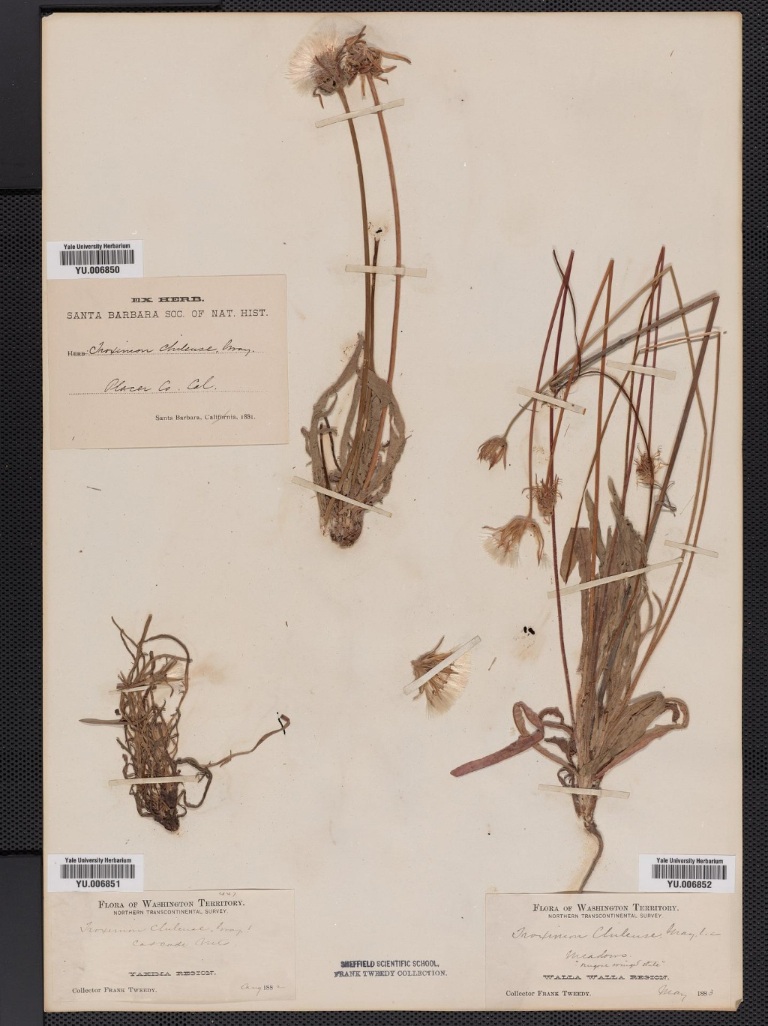 Yale University Herbarium
YU.006850
EX. HERB.
SANTA BARBARA SOC. OF NAT. HIST.
NAME Troximon Chilense, Gray.
Placer Co. Cal.
Santa Barbara, California, 188
Yale University Herbarium
YU.006851
FLORA OF WASHINGTON TERRITORY.
NORTHERN TRANSCONTINENTAL SURVEY.
Troximon Chilense, Gray
Cascade
YAKIMA REGION.
Collector FRANK TWEEDY.
Aug 188
SHEFFIELD SCIENTIFIC SCHOOL,
FRANK TWEEDY COLLECTION.
Yale University Herbarium
YU.006852
FLORA OF WASHINGTON TERRITORY.
NORTHERN TRANSCONTINENTAL SURVEY
Troximon Chilense, Gray
Meadows
WALLA WALLA REGION.
Collector FRANK TWEEDY.
May 1883